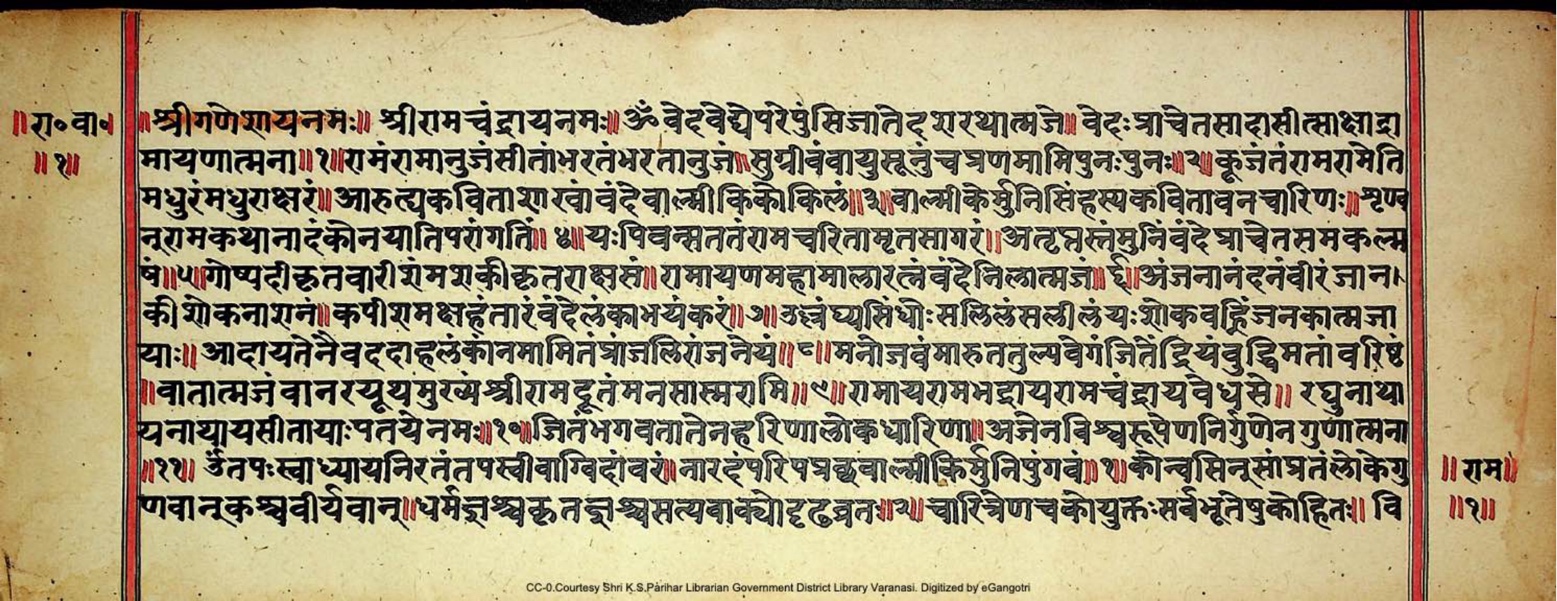 ॥रा॰वा॰
॥१॥
॥श्रीगणेशायनमः॥ श्रीरामचंद्रायनमः॥ॐ वेदवेद्येपरेपुंसिजातेदशरथात्मजे॥ वेदःप्राचेतसादासीत्साक्षाद्रा
मायणात्मना॥१॥रामंरामानुजंसीतांभरतंभरतानुजं॥सुग्रीवंवायुसूनुंचप्रणमामिपुनःपुनः॥२॥कूजंतंरामरामेति
मधुरंमधुराक्षरं॥आरुह्यकविताशाखांवंदेवाल्मीकिकोकिलं॥३॥वाल्मीकेर्मुनिसिंहस्यकवितावनचारिणः॥शृण्व
न्रामकथानादंकोनयातिपरांगतिं॥४॥यःपिबन्सततंरामचरितामृतसागरं॥अतृप्तस्तंमुनिंवंदेप्राचेतसमकल्म
षं॥५॥गोष्पदीकृतवारीशंमशकीकृतराक्षसं॥रामायणमहामालारत्नंवंदेनिलात्मजं॥६॥अंजनानंदनंवीरंजान
कीशोकनाशनं॥कपीशमक्षहंतारंवंदेलंकाभयंकरं॥७॥उल्लंघ्यसिंधोःसलिलंसलीलंयःशोकवह्निंजनकात्मजा
याः॥आदायतेनैवददाहलंकांनमामितंप्रांजलिरांजनेयं॥८॥मनोजवंमारुततुल्यवेगंजितेंद्रियंबुद्धिमतांवरिष्ठं
॥वातात्मजंवानरयूथमुख्यंश्रीरामदूतंमनसास्मरामि॥९॥रामायरामभद्रायरामचंद्रायवेधसे॥ रघुनाथा
यनाथायसीतायाःपतयेनमः॥१०॥जितंभगवतातेनहरिणालोकधारिणा॥अजेनविश्वरूपेणनिर्गुणेनगुणात्मना
॥११॥ ॐतपःस्वाध्यायनिरतंतपस्वीवाग्विदांवरं॥नारदंपरिपप्रछवाल्मीकिर्मुनिपुंगवं॥१॥कोन्वसिन्सांप्रतंलोकेगु
णवान्कश्चवीर्यवान्॥धर्मज्ञश्चकृतज्ञश्चसत्यवाक्योदृढव्रतः॥२॥चारित्रेणचकोयुक्तःसर्वभूतेषुकोहितः॥ वि
॥राम॥
॥१॥
CC-0.Courtesy Shri K.S.Parihar Librarian Government District Library Varanasi. Digitized by eGangotri